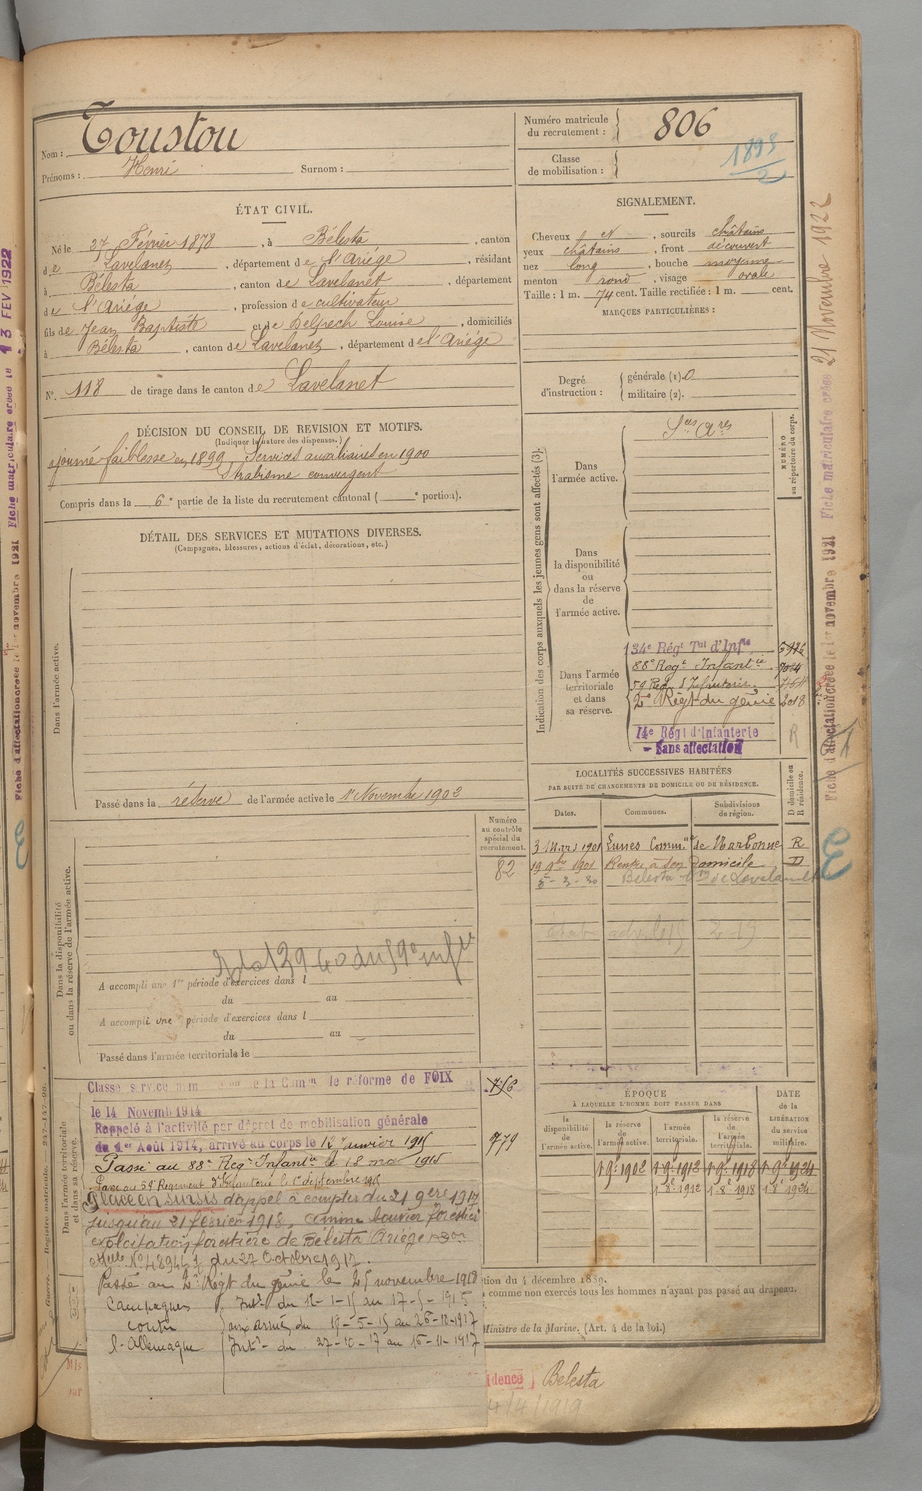 Nom : Toustou
Prénoms : Henri Surnom :
Numéro matricule du recrutement : 806
Classe de mobilisation : 1898
ÉTAT CIVIL.
Né le 27 Février 1878, à Bélesta, canton
de Lavelanet, département de l'Ariége, résidant
à Bélesta, canton de Lavelanet, département
de l'Ariége, profession de cultivateur
fils de Jean Baptiste et de Delpech Louise, domiciliés
à Bélesta, canton de Lavelanet, département de l'Ariége
N° 118 de tirage dans le canton de Lavelanet
SIGNALEMENT.
Cheveux et, sourcils châtains
yeux châtains, front découvert
nez long, bouche moyenne
menton rond, visage ovale
Taille : 1 m. 74 cent. Taille rectifiée : 1 m. cent.
MARQUES PARTICULIÈRES :
Degré d'instruction : générale (1). 0
militaire (2).
DÉCISION DU CONSEIL DE REVISION ET MOTIFS.
(Indiquer la nature des dispenses.)
ajourné faiblesse en 1899 Services auxiliaires en 1900
Strabisme convergent
Compris dans la 6e partie de la liste du recrutement cantonal ( e portion).
DÉTAIL DES SERVICES ET MUTATIONS DIVERSES.
(Campagnes, blessures, actions d'éclat, décorations, etc.)
Dans l'armée active.
Passé dans la réserve de l'armée active le 1 Novembre 1902
Indication des corps auxquels les jeunes gens sont affectés (3).
NUMÉRO au répertoire du corps.
Dans l'armée active.
Sces Ares
Dans la disponibilité ou dans la réserve de l'armée active.
Dans l'armée territoriale et dans sa réserve.
134e Régt Tal d'Infie
88e Regt Infantie
59 Reg d'Infanterie
2e Régt du génie 2018
14e Régt d'Infanterie R
- Sans affectation
LOCALITÉS SUCCESSIVES HABITÉES
PAR SUITE DE CHANGEMENTS DE DOMICILE OU DE RÉSIDENCE.
D domicile ou R résidence.
Dates. Communes. Subdivisions de région.
3 1901 Comm de Narbonne R
19 9bre 1901 Rentré à son domicile D
5-3-20 Bélesta de Lavelanet
Numéro au contrôle spécial du recrutement.
82
Dans la disponibilité ou dans la réserve de l'armée active.
A accompli une 1re période d'exercices dans l
du au
A accompli une 2e période d'exercices dans l
du au
Passé dans l'armée territoriale le
Dans l'armée territoriale et dans sa réserve.
Classé service de la Comm de réforme de FOIX
le 14 Novemb 1914
Rappelé à l'activité par décret de mobilisation générale
du 1er Août 1914, arrivé au corps le 12 Janvier 1915
Passé au 88e Regt Infantie le 18 mai 1915
Passé au 59 Regiment d'Infanterie le 1er septembre 1915
Placé en sursis d'appel à compter du 21 9bre 1917
jusqu'au 21 février 1918, comme bouvier forestier
exploitation forestière de Bélesta Ariége
du 27 Octobre 1917.
Passé au 2e Régt du génie le 25 novembre 1918
Campagnes Intr du 12-1-15 au 17-5-1915
contre aux armées du 18-5-15 au 26-10-1917
l'Allemagne Intr du 27-10-17 au 16-11-1917
779
ÉPOQUE
A LAQUELLE L'HOMME DOIT PASSER DANS
DATE de la LIBÉRATION du service militaire.
la disponibilité de l'armée active. la réserve de l'armée active. l'armée territoriale. la réserve de l'armée territoriale.
1 9e 1902 1 9e 1912 1 9e 1918 1 9e 1924
1 8e 1912 1 8e 1918 1 8e 1924
tion du 4 décembre 1889.
comme non exercés tous les hommes n'ayant pas passé au drapeau.
Ministre de la Marine. (Art. 4 de la loi.)
idence Bélesta
4/4/1919
Fiche d'affectation créée le 1er novembre 1921 Fiche matriculaire créée 21 Novembre 1922
Fiche d'affectation créée le 1er novembre 1921 Fiche matriculaire créée le 13 FEV 1922